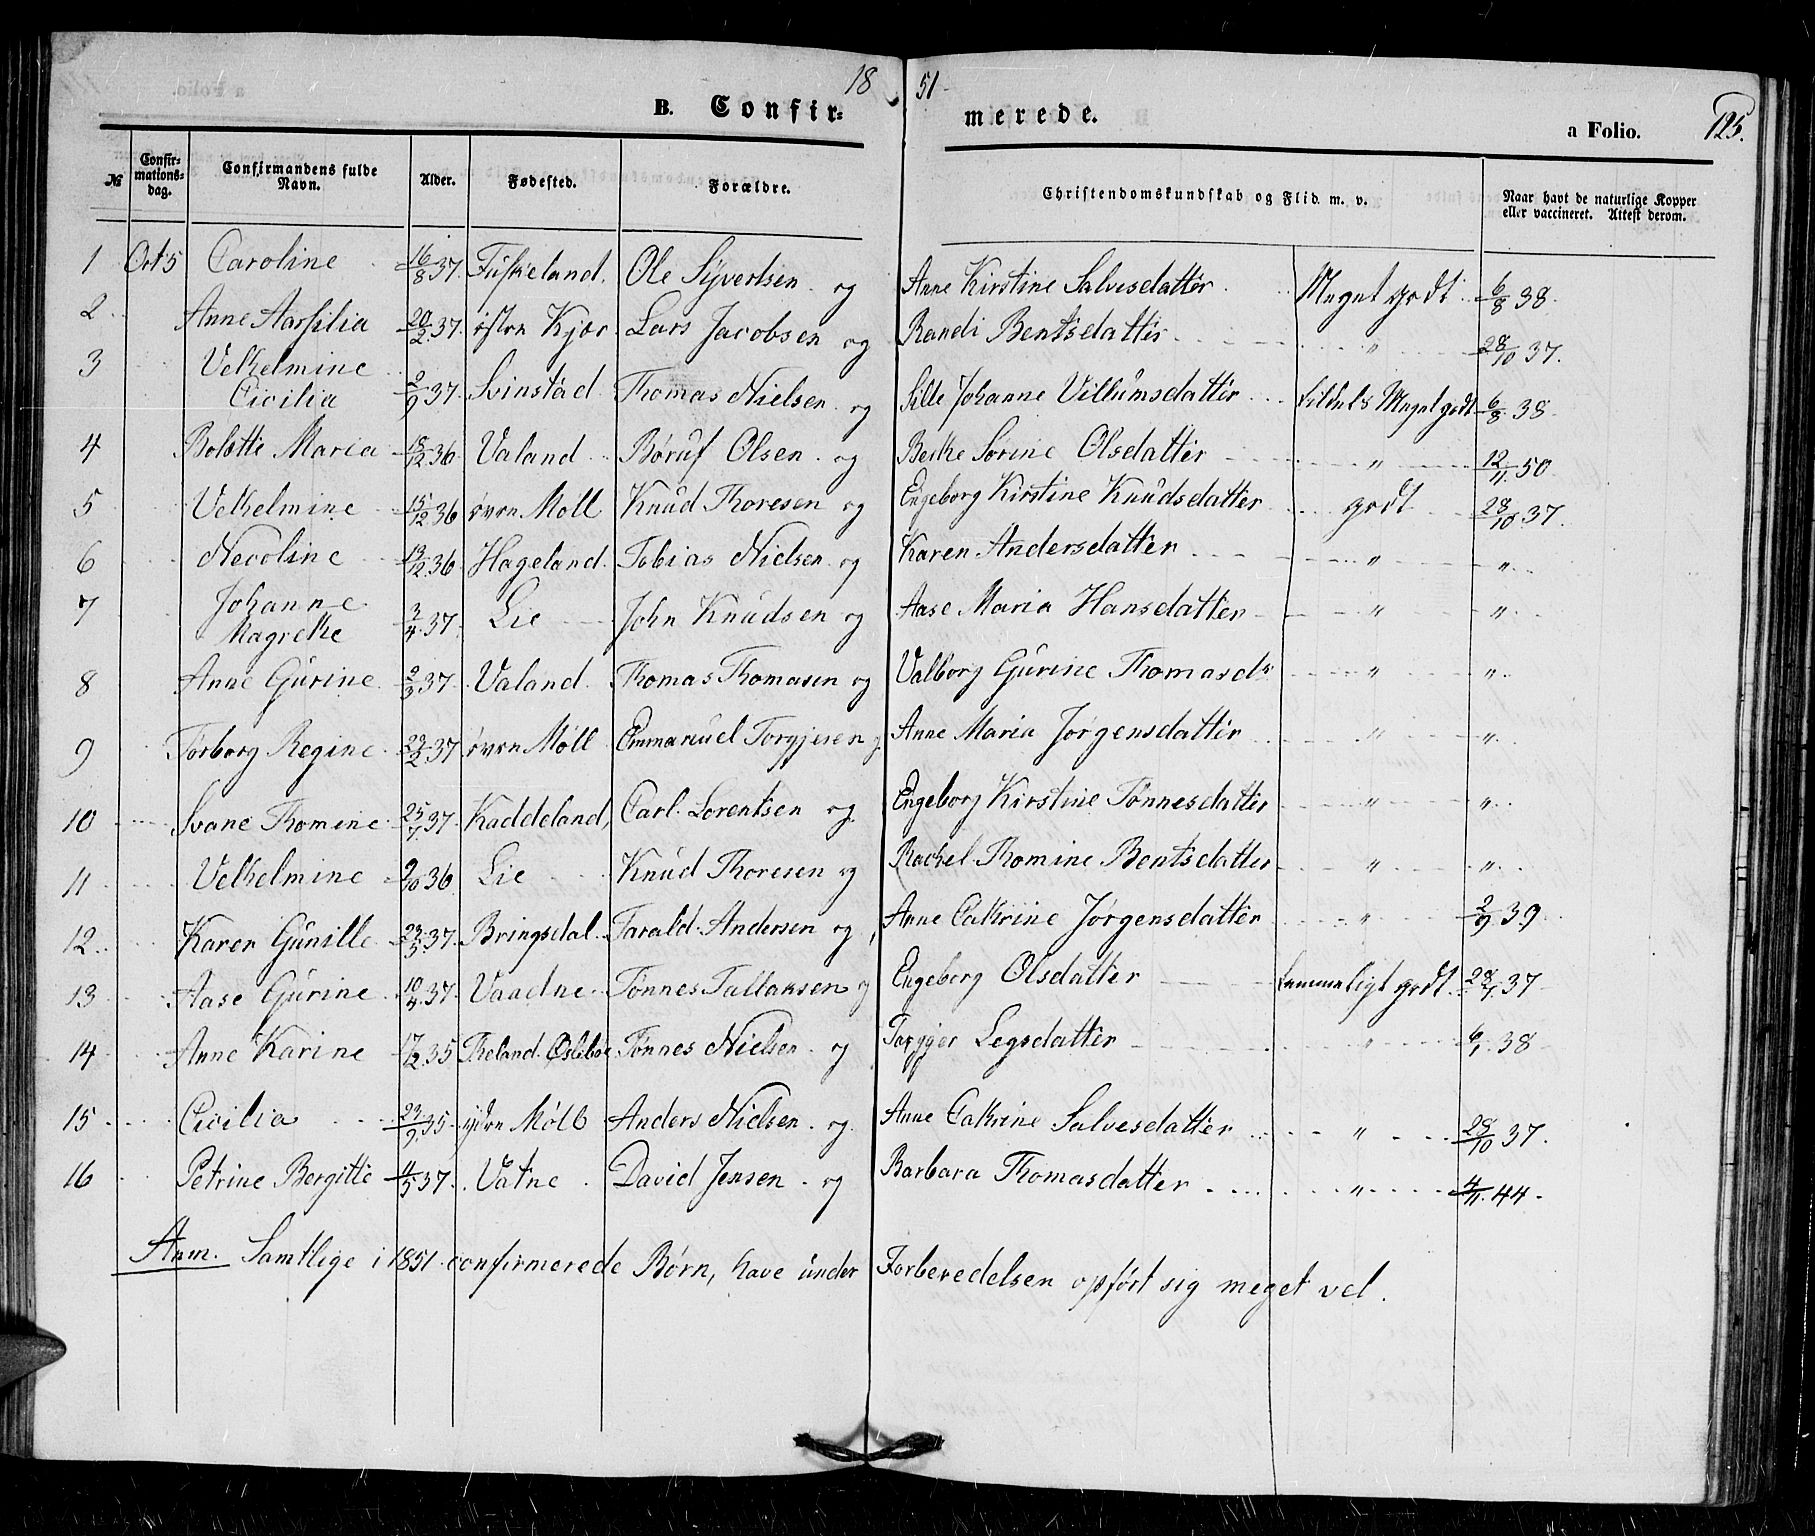 18 51
B. Confir= merede. a Folio. 125.
№ Confir-mations-dag. Confirmandens fulde Navn. Alder. Fødested. Forældre. Christendomskundskab og Flid m. v. Naar havt de naturlige Kopper eller vaccineret. Attest derom.
1 Oct 5 Caroline 16/8 37. Fuskeland. Ole Syvertsen og Anne Kirstine Salvesdatter Meget godt 6/8 38.
2 Anne Aarsilia 20/2 37. østre Kjær Lars Jacobsen og Randi Bentsdatter " 28/10 37.
3 Velhelmine Cicilia 2/9 37. Svinstad Thomas Nielsen og Sille Johanne Villumsdatter Meget godt 6/8 38
4 Bolette Maria 18/12 36 Valand Børuf Olsen og Berthe Sørine Olsdatter " 12/11 50
5 Velhelmine 15/12 36 øvre Møll Knud Thoresen og Engeborg Kirstine Knudsdatter godt 28/10 37.
6 Necoline 13/12 36 Hageland Tobias Nielsen og Karen Andersdatter " "
7 Johanne Magrethe 3/4 37. Lie John Knudsen og Aase Maria Hansdatter " "
8 Anne Gurine 2/3 37 Valand Thomas Thomasen og Valborg Gurine Thomasdr " "
9 Torborg Regine 23/2 37 øvre Møll Emmanuel Torgjesen og Anne Maria Jørgensdatter " "
10 Svane Thomene 25/7 37. Kaddeland, Carl Lorentsen og Engeborg Kirstine Tønnesdatter " "
11 Velhelmine 9/10 36 Lie Knud Thoresen og Rachel Thomine Bentsdatter " "
12 Karen Gunille 23/5 37. Bringsdal Tarald Andersen og Anne Cathrine Jørgensdatter " 2/9 39
13 Aase Gurine 10/4 37. Vaadne Tønnes Tallaksen og Engeborg Olsdatter temmeligt godt 28/1 37
14 Anne Karine 17/2 35 Theland Øslebøe Tønnes Nielsen og Torgjer Legsdatter " 6/1 38
15 Cicilia 23/9 35 ydre Møll Anders Nielsen og Anne Cathrine Salvesdatter " 28/10 37.
16 Petrine Bergitte 4/5 37. Vatne David Jensen og Barbara Thomasdatter " 4/11 44
Anm. Samtlige i 1851 confirmerede Børn, have under Forberedelsen opført sig meget vel.